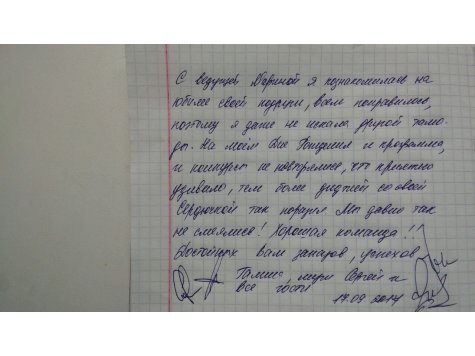 С ведущей Мариной я познакомилась на
юбилее своей подруги, всем понравилось,
поэтому я даже не искала другой тама-
ды. На моём Дне Рождения и программа,
и конкурсы не повторялись, что приятно
удивило, тем более диджей со своей
Сердючкой так поразил. Мы давно так
не смеялись! Хорошая команда!
Достойных Вам заказов, успехов
муж Сергей и
все гости
17.09.2014